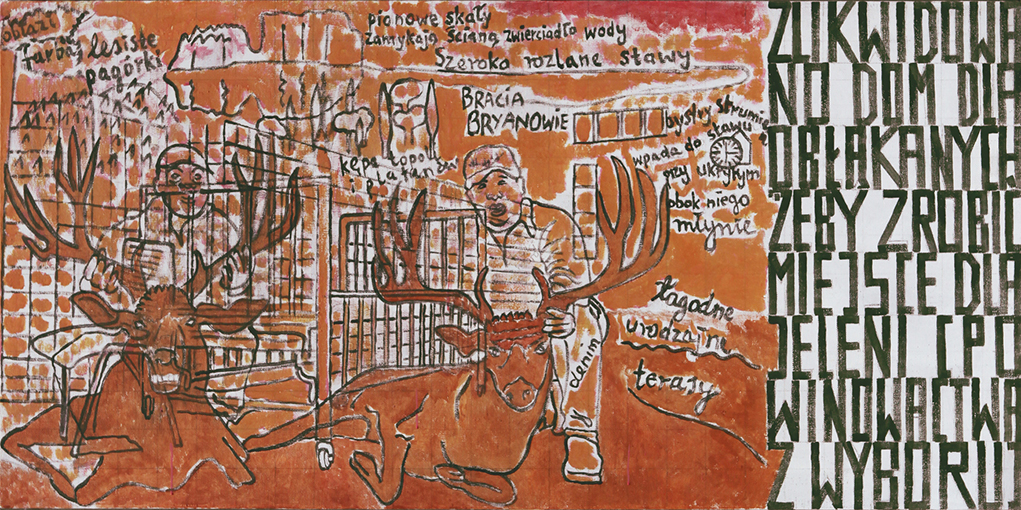 obłazi
farbą lesiste
pagórki
pionowe skały
zamykają ścianą zwierciadło wody
Szeroko rozlane stawy
BRACIA
BRYANOWIE
kępa topoli
i platanów
bystry strumień
wpada do stawu
przy ukrytym
obok niego
młynie
łagodne
urodzajne
terasy
Denim
ZLIKWIDOWA
NO DOM DLA
OBŁĄKANYCH
ŻEBY ZROBIĆ
MIEJSCE DLA
JELENI (PO
WINOWACTWA
Z WYBORU)